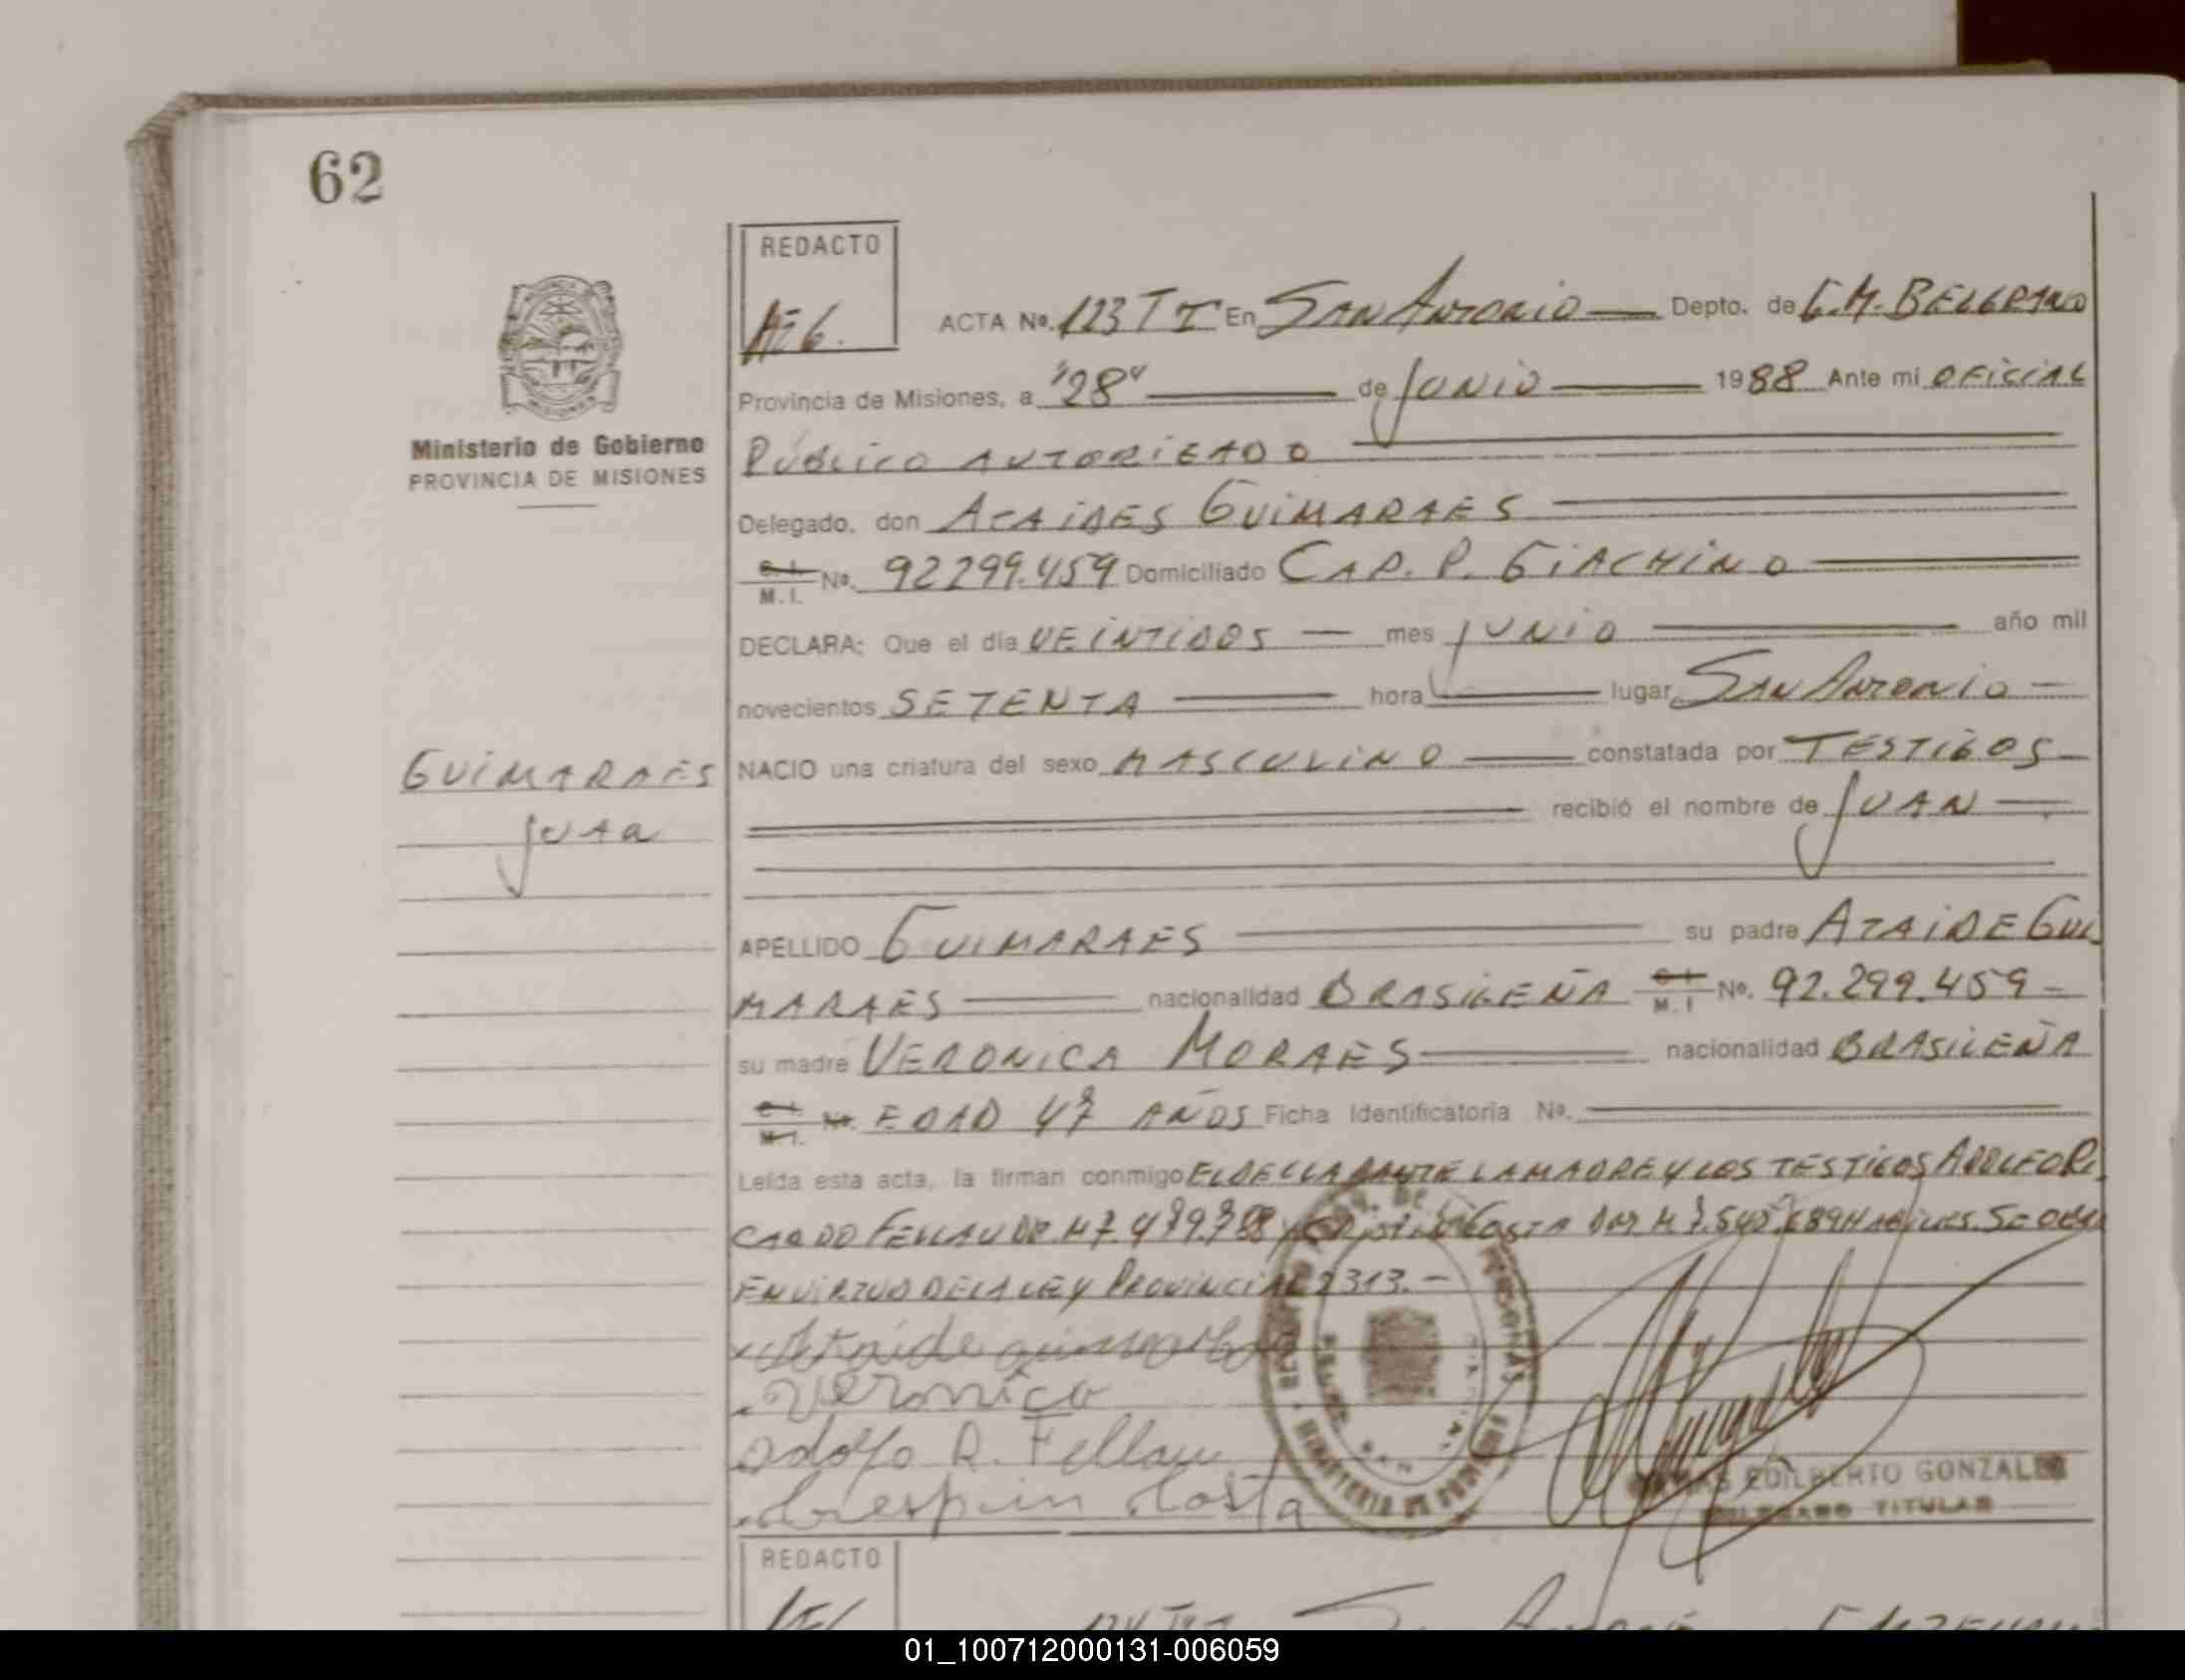 62
REDACTO
ACTA Nº. 123 T I En San Antonio Depto. de G.M. BELGRANO
Provincia de Misiones, a "28" de Junio 1988 Ante mi OFICIAL
Ministerio de Gobierno
PROVINCIA DE MISIONES
Público AUTORIZADO
Delegado, don ATAIDES GUIMARAES
C.I. M.I. Nº. 92299.459 Domiciliado CAP. P. GIACHINO
DECLARA: Que el día VEINTIDOS mes JUNIO año mil
novecientos SETENTA hora lugar San Antonio
NACIO una criatura del sexo MASCULINO constatada por TESTIGOS
GUIMARAES
Juan
recibió el nombre de JUAN
APELLIDO GUIMARAES su padre ATAIDE GUI
MARAES nacionalidad BRASILEÑA C.I. M.I Nº. 92.299.459
su madre VERONICA MORAES nacionalidad BRASILEÑA
EDAD 47 AÑOS Ficha Identificatoria Nº.
Leída esta acta, la firman conmigo EL DECLARANTE LA MADRE Y LOS TESTIGOS ADOLFO RI
CARDO FELLAU Y COSTA HABILES. SE
EN VIRTUD DE LA LEY PROVINCIAL 2313.-
Ataide
Veronica
Adolfo R. Fellau
Crespin Costa
EDILBERTO GONZALEZ
DELEGADO TITULAR
REDACTO
01_100712000131-006059